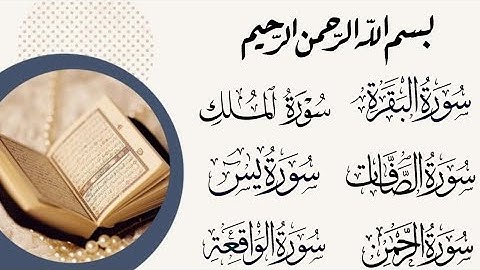 بسم الله الرحمن الرحيم
سُورَةُ البَقَرَةِ سُورَةُ المُلكِ
سُورَةُ الصَّافَّات سُورَةُ يسٓ
سُورَةُ الرَّحْمٰن سُورَةُ الوَاقِعَة